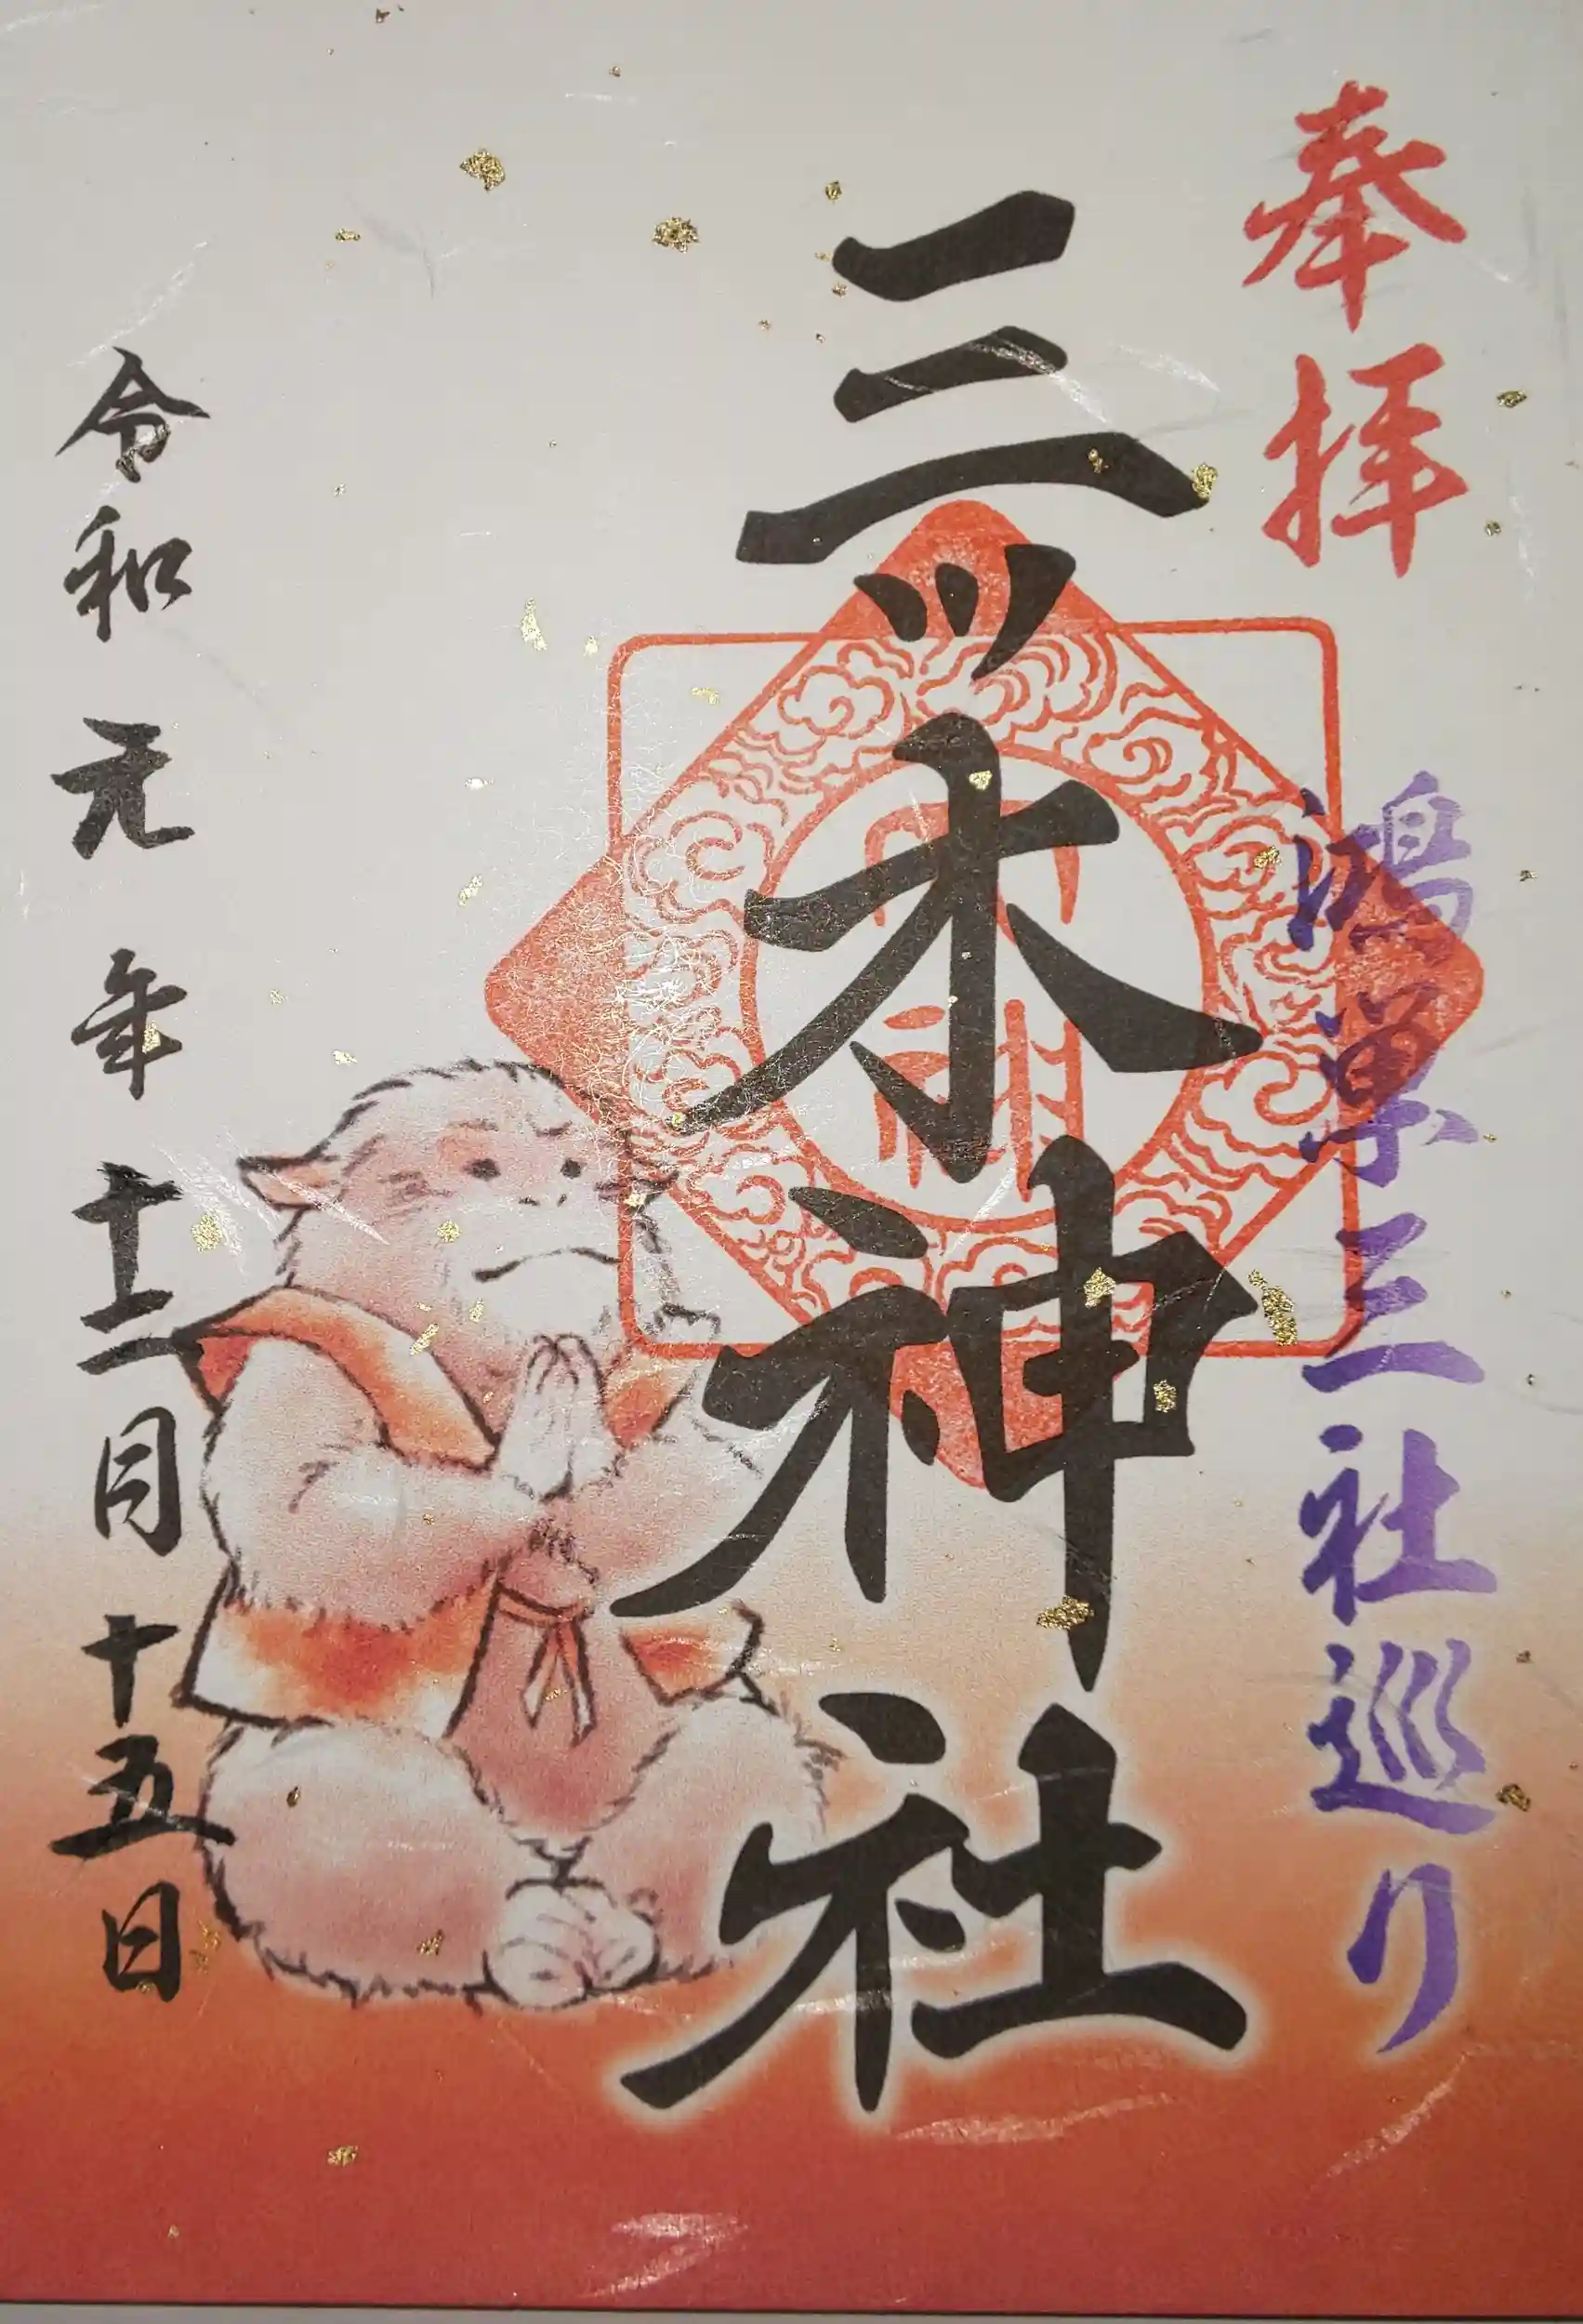 奉拝
鴻巣三社巡り
三ツ木神社
令和元年十二月十五日